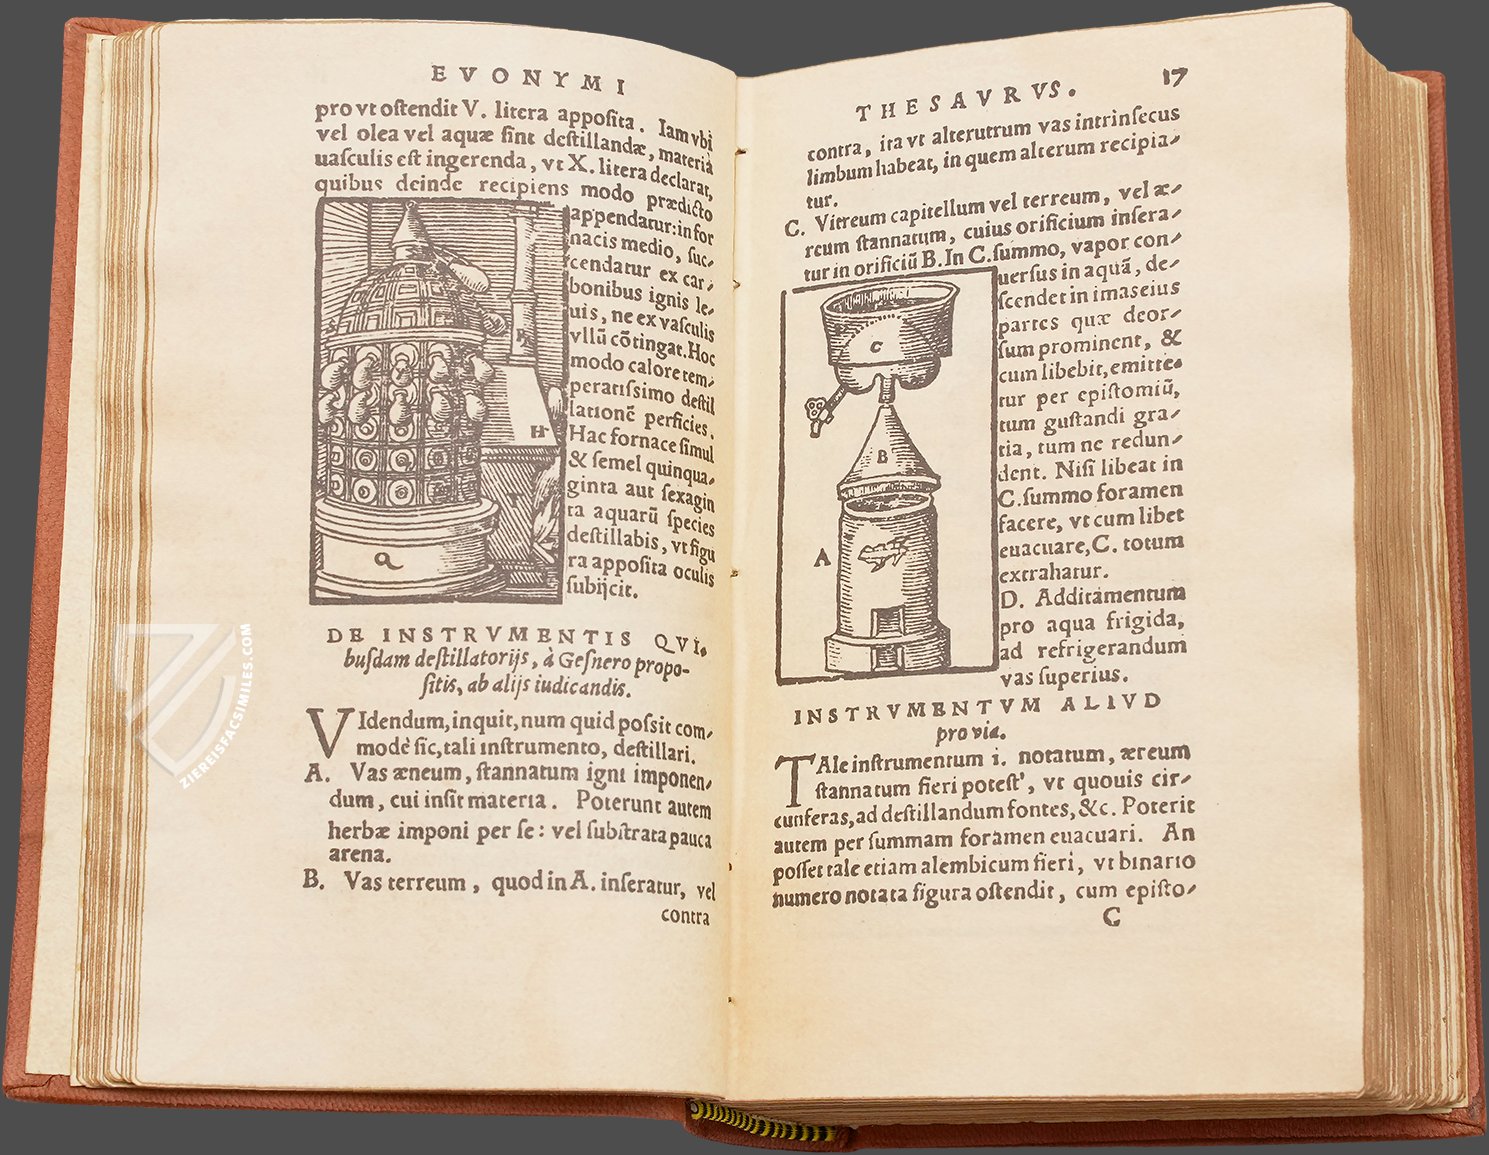 EVONYMI
pro vt oſtendit V. litera appoſita. Iam vbi
vel olea vel aquæ ſint deſtillandæ, materia
uaſculis eſt ingerenda, vt X. litera declarat,
quibus deinde recipiens modo prædicto
appendatur: in for
nacis medio, ſuc-
cendatur ex car-
bonibus ignis le-
uis, ne ex vaſculis
vllũ cõtingat. Hoc
modo calore tem-
peratiſsimo deſtil
lationẽ perficies.
Hac fornace ſimul
& ſemel quinqua-
ginta aut ſexagin
ta aquarũ ſpecies
deſtillabis, vt figu
ra appoſita oculis
ſubijcit.
H
Q
DE INSTRVMENTIS QVI-
buſdam deſtillatorijs, à Geſnero propo-
ſitis, ab alijs iudicandis.
VIdendum, inquit, num quid poſsit com-
modè ſic, tali inſtrumento, deſtillari.
A. Vas æneum, ſtannatum igni imponen-
dum, cui inſit materia. Poterunt autem
herbæ imponi per ſe: vel ſubſtrata pauca
arena.
B. Vas terreum, quod in A. inſeratur, vel
contra
THESAVRVS. 17
contra, ita vt alterutrum vas intrinſecus
limbum habeat, in quem alterum recipia-
tur.
C. Vitreum capitellum vel terreum, vel æ-
reum ſtannatum, cuius orificium inſera-
tur in orificiũ B. In C. ſummo, vapor con-
uerſus in aquã, de-
ſcendet in imas eius
partes quæ deor-
ſum prominent, &
cum libebit, emitte-
tur per epiſtomiũ,
tum guſtandi gra-
tia, tum ne redun-
dent. Niſi libeat in
C. ſummo foramen
facere, vt cum libet
euacuare, C. totum
extrahatur.
D. Additamentum
pro aqua frigida,
ad refrigerandum
vas ſuperius.
C
B
A
INSTRVMENTVM ALIVD
pro via.
TAle inſtrumentum i. notatum, æreum
ſtannatum fieri poteſt, vt quouis cir-
cunferas, ad deſtillandum fontes, &c. Poterit
autem per ſummam foramen euacuari. An
poſſet tale etiam alembicum fieri, vt binario
numero notata figura oſtendit, cum epiſto-
C
ZIEREISFACSIMILES.COM